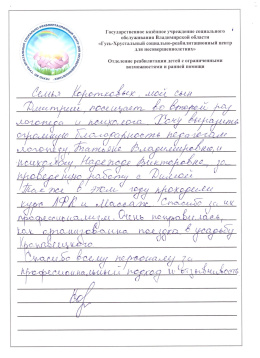 Государственное казённое учреждение социального
обслуживания Владимирской области
«Гусь-Хрустальный социально-реабилитационный центр
для несовершеннолетних»
Отделение реабилитации детей с ограниченными
возможностями и ранней помощи
Семья Коротковых, мой сын
Дмитрий посещает во второй раз
логопеда и психолога. Хочу выразить
огромную благодарность педагогам
логопеду Татьяне Владимировной
психологу Надежде Викторовне за
проведенную работу с Димой
Также в этом году проходили
курс ЛФК и Массаж. Спасибо за их
профессионализм. Очень понравилась,
как организована поездка в усадьбу
Храповицкого
Спасибо всему персоналу за
профессиональный подход и отзывчивость